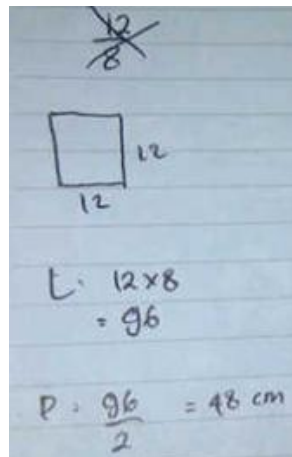 12
8
12
12
L. 12 x 8
= 96
P : 96
2
= 48 cm